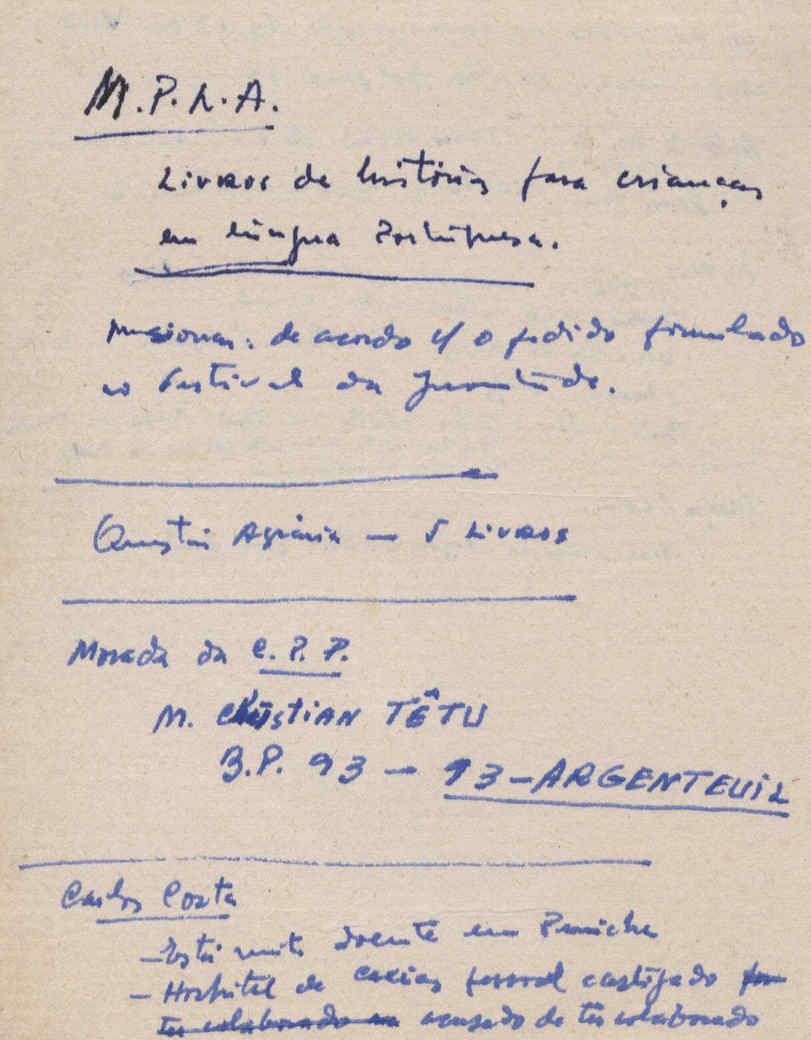 M.P.L.A.
Livros de história para crianças
em língua Portuguesa.
de acordo c/ o pedido formulado
no Festival da Juventude.
Questão Agrária — 5 Livros
Morada da C.P.P.
M. Christian TÊTU
B.P. 93 — 93 — ARGENTEUIL
Carlos Costa
— Está muito doente em Peniche
— Hospital de Caxias pessoal castigado por
ter colaborado na acusado de ter colaborado